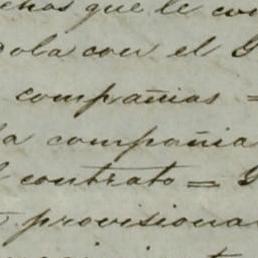 chos que le con
dola con el G
compañias =
la compañia
l contrato = G
provisional